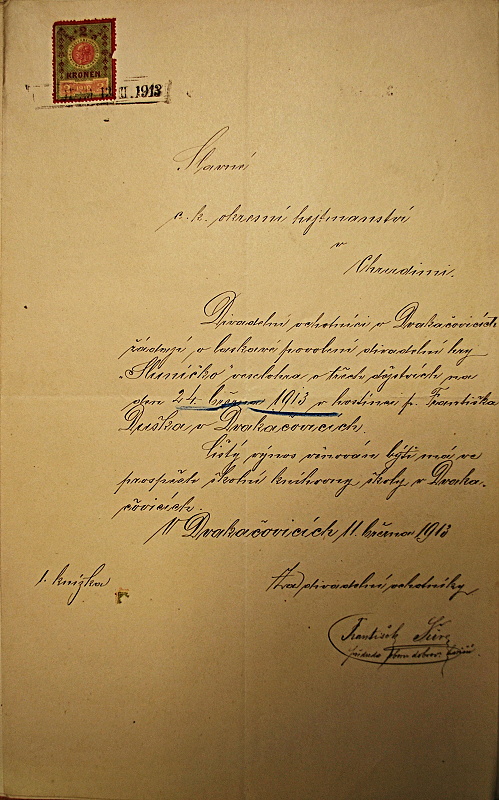 2
KRONEN
1913
Slavné
c. k. okresní hejtmanství
v
Chrudimi.
Divadelní ochotníci v Dvakačovicích
žádají o laskavé povolení divadelní hry
veselohra o třech dějstvích na
den 24 března 1913 v hostinci p. Františka
Duška v Dvakačovicích.
Čistý výnos věnován býti má ve
prospěch školní knihovny školy v Dvaka-
čovicích.
V Dvakačovicích 11. března 1913
1. knížka
Za divadelní ochotníky
František